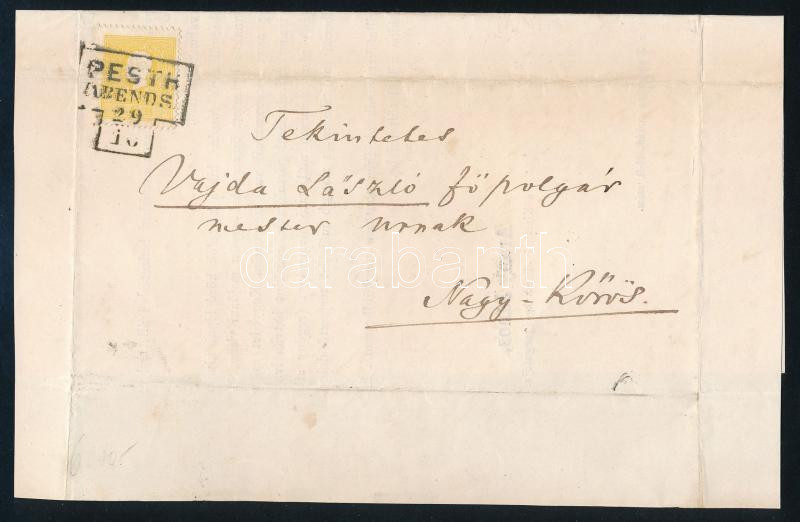 PESTH
ABENDS
29
10
Tekintetes
Vajda László főpolgár
mester urnak
Nagy-Kőrös.
darabanth